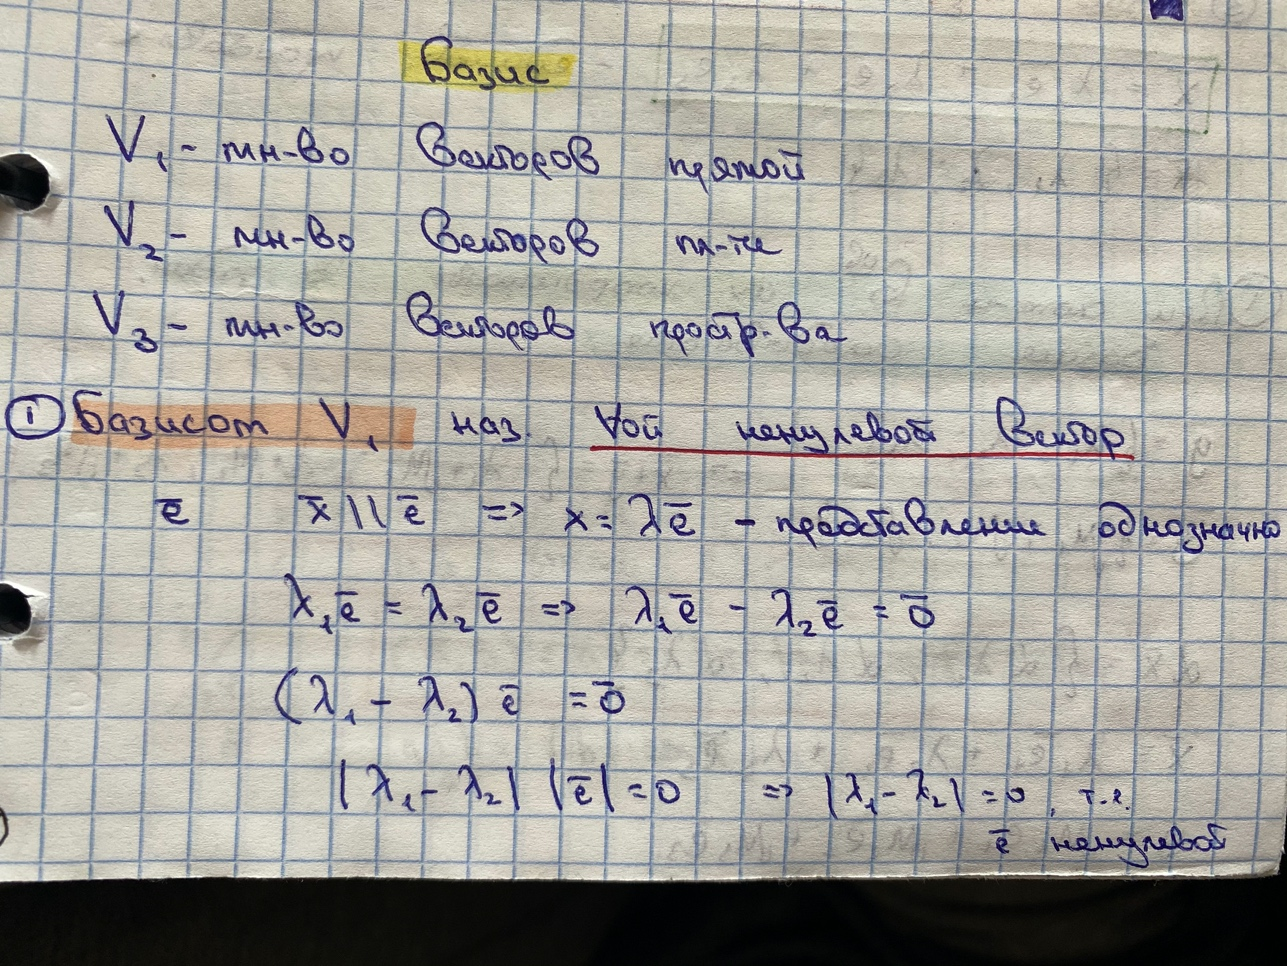 Базис
V₁ - мн-во векторов прямой
V₂ - мн-во векторов пл-ти
V₃ - мн-во векторов простр-ва
① Базисом V₁ наз. ∀ой ненулевой вектор
e̅ x̅ || e̅ => x = λe̅ - представление однозначно
λ₁e̅ = λ₂e̅ => λ₁e̅ - λ₂e̅ = 0̅
(λ₁ - λ₂) e̅ = 0̅
|λ₁ - λ₂| |e̅| = 0 => |λ₁ - λ₂| = 0, т.к.
e̅ ненулевой